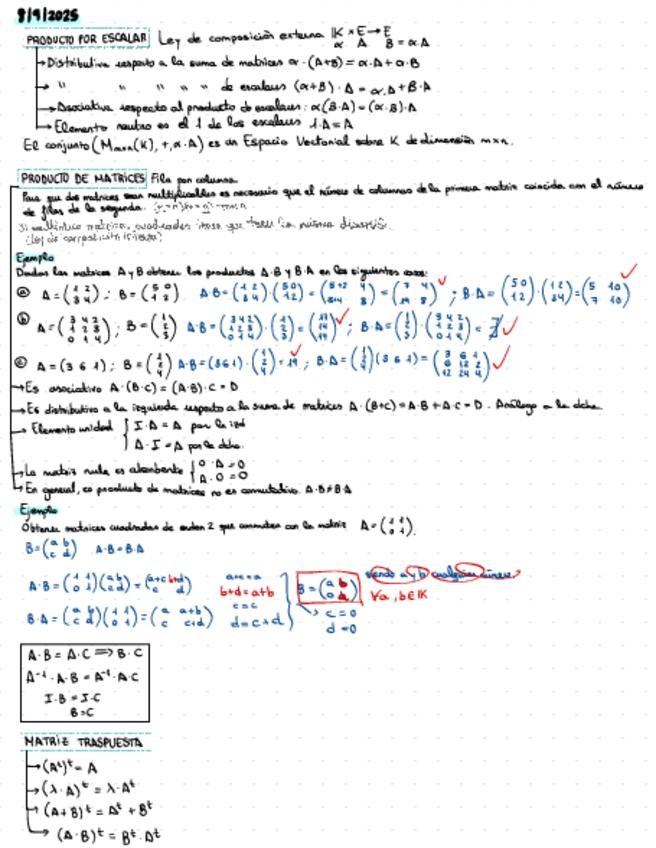 8/9/2025
PRODUCTO POR ESCALAR Ley de composición externa K × E → E
α A B = α·A
→ Distributiva respecto a la suma de matrices α·(A+B) = α·A + α·B
→ " " " " " de escalares (α+β)·A = α·A + β·A
→ Asociativa respecto al producto de escalares: α(β·A) = (α·β)·A
→ Elemento neutro es el 1 de los escalares 1·A = A
El conjunto (Mmxn(K), +, α·A) es un Espacio Vectorial sobre K de dimensión m×n.
PRODUCTO DE MATRICES Fila por columna
Para que dos matrices sean multiplicables es necesario que el número de columnas de la primera matriz coincida con el número
de filas de la segunda.
Si multiplico matrices cuadradas tienen que tener la misma dimensión.
Ejemplo
Dadas las matrices A y B obtener los productos A·B y B·A en los siguientes casos:
a) A = (1 2 / 3 4) ; B = (5 0 / 1 2) A·B = (1 2 / 3 4)·(5 0 / 1 2) = = (7 4 / 19 8) ✓ ; B·A = (5 0 / 1 2)·(1 2 / 3 4) = (5 10 / 7 10) ✓
b) A = (3 4 2 / 1 2 3 / 0 1 4) ; B = (1 / 2 / 3) A·B = (3 4 2 / 1 2 3 / 0 1 4)·(1 / 2 / 3) = ✓ ; B·A = (1 / 2 / 3)·(3 4 2 / 1 2 3 / 0 1 4) = ∄ ✓
c) A = (3 6 1) ; B = (1 / 2 / 4) A·B = (3 6 1)·(1 / 2 / 4) = 19 ✓ ; B·A = (1 / 2 / 4)(3 6 1) = (3 6 1 / 6 12 2 / 12 24 4) ✓
→ Es asociativo A·(B·C) = (A·B)·C = D
→ Es distributivo a la izquierda respecto a la suma de matrices A·(B+C) = A·B + A·C = D. Análogo a la dcha.
→ Elemento unidad { I·A = A por la izd
A·I = A por la dcha.
→ La matriz nula es absorbente { 0·A = 0
A·0 = 0
→ En general, el producto de matrices no es conmutativo. A·B ≠ B·A
Ejemplo
Obtener matrices cuadradas de orden 2 que conmuten con la matriz A = (1 1 / 0 1).
B = (a b / c d) A·B = B·A
A·B = (1 1 / 0 1)(a b / c d) = (a+c b+d / c d) a+c = a
b+d = a+b
B·A = (a b / c d)(1 1 / 0 1) = (a a+b / c c+d) c = c
d = c+d
B = (a b / 0 a) siendo a y b cualquier número
∀a, b ∈ K
→ c = 0
d = 0
A·B = A·C ⟹ B·C
A⁻¹·A·B = A⁻¹·A·C
I·B = I·C
B = C
MATRIZ TRASPUESTA
→ (Aᵗ)ᵗ = A
→ (λ·A)ᵗ = λ·Aᵗ
→ (A+B)ᵗ = Aᵗ + Bᵗ
→ (A·B)ᵗ = Bᵗ·Aᵗ